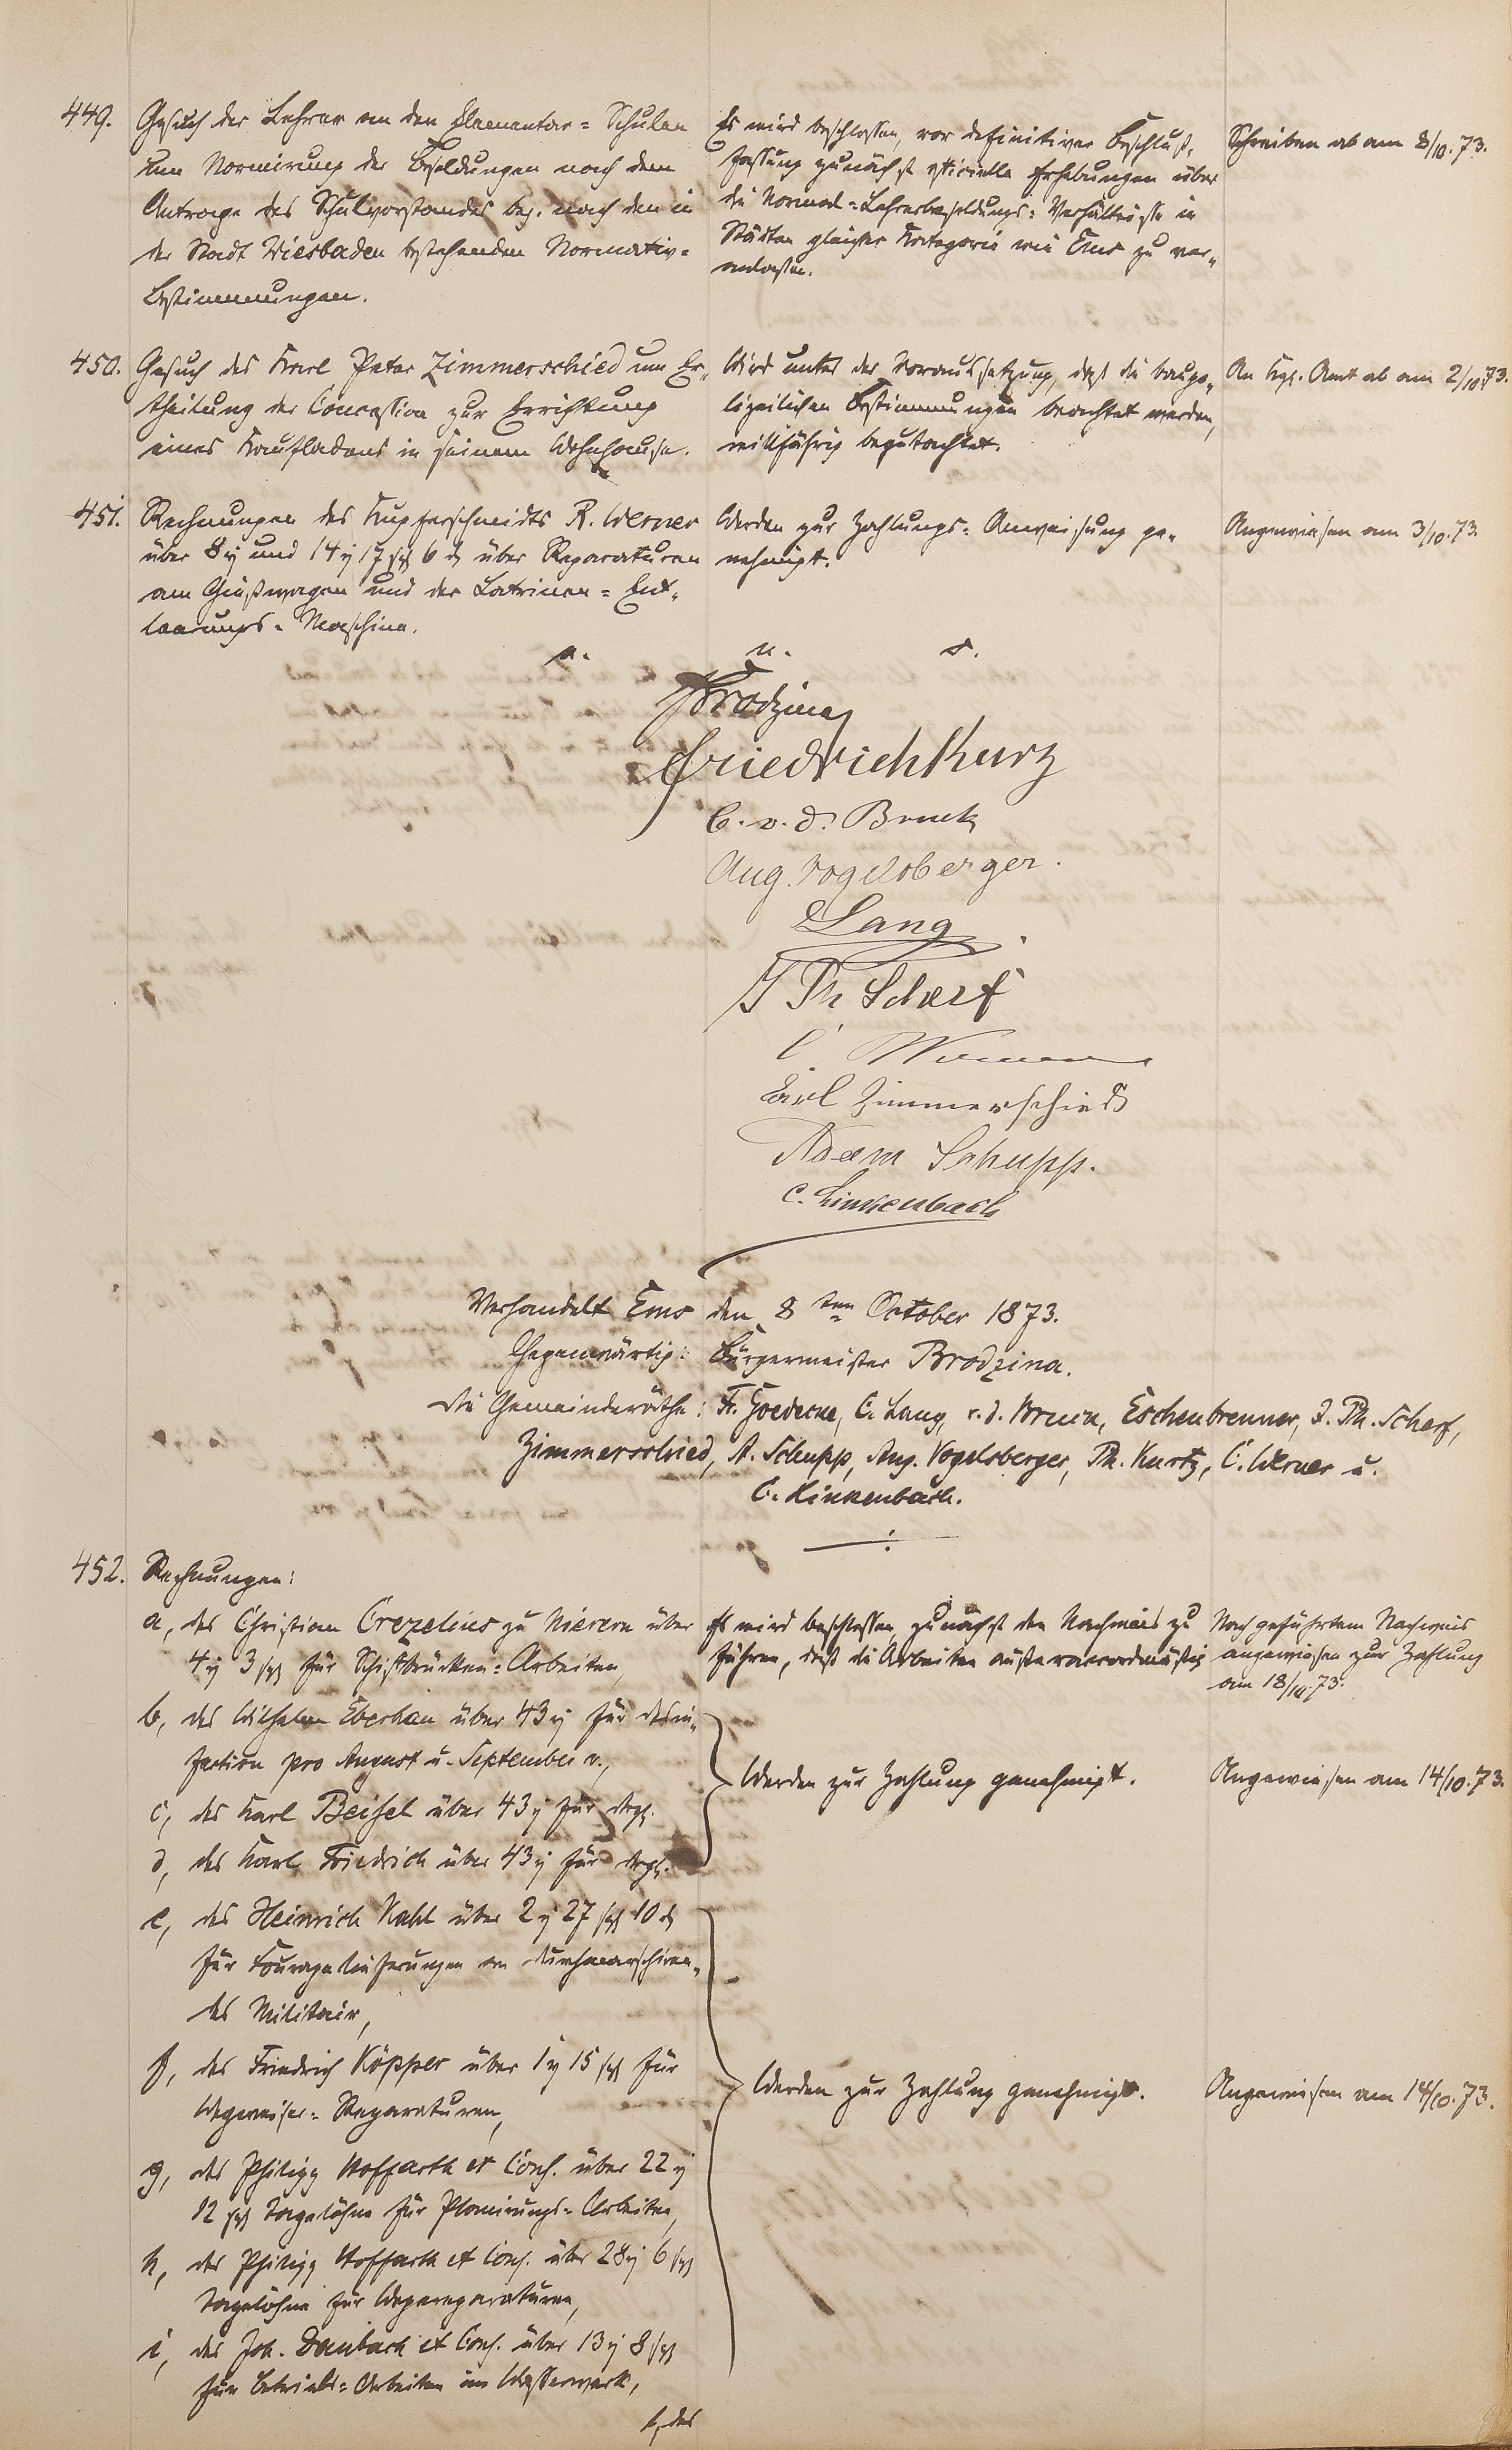 449.
Gesuch der Lehrer an den Elementar = Schulen
um Normirung der Besoldungen nach dem
Antrage des Schulvorstandes bez. nach den in
der Stadt Wiesbaden bestehenden Normativ =
Bestimmungen.
Es wird beschlossen, vor definitiver Beschluß-
fassung zunächst officielle Erhebungen über
die Normal = Lehrerbesoldungs = Verhältnisse in
Städten gleicher Kategorie wie Ems zu ver-
anlassen.
Schreiben ab am 8/10. 73.
450.
Gesuch des Karl Peter Zimmerschied um Er-
theilung der Concession zur Errichtung
eines Kaufladens in seinem Wohnhause.
Wird unter der Voraussetzung, daß die baupo-
lizeilichen Bestimmungen beachtet werden,
willfährig begutachtet.
An Kgl. Amt ab am 2/10. 73.
451.
Rechnungen des Kupferschmidts R. Werner
über 8 und 14 17 sgr 6 über Reparaturen
am Gießwagen und der Latrinen = Ent-
leerungs = Maschine.
Werden zur Zahlungs = Anweisung ge-
nehmigt.
Angewiesen am 3/10. 73.
a. u. s.
Brodzina
Friedrich Kurz
C. v. d. Bruck
Aug. Vogelsberger.
Lang
J Ph Scherf
C. Werner
Carl Zimmerschied
Adam Schupp.
C. Linkenbach
Verhandelt Ems den 8ten October 1873.
Gegenwärtig: Bürgermeister Brodzina.
Die Gemeinderäthe: Fr. Goedecke, C. Lang, v. d. Bruck, Eschenbrenner, J. Ph. Scherf,
Zimmerschied, A. Schupp, Aug. Vogelsberger, Ph. Kurtz, C. Werner u.
C. Linkenbach.
452.
Rechnungen:
a, des Christian Crezelius zu Nievern über
4 3 sgr für Schiffbrücken = Arbeiten,
Es wird beschlossen, zunächst den Nachweis zu
führen, daß die Arbeiten außeraccordmäßig
Nach geführtem Nachweis
angewiesen zur Zahlung
am 18/10. 73.
b, des Wilhelm über 43 für Desin-
fection pro August u. September c.,
c, des Karl Beisel über 43 für dergl.
d, des Karl Friedrich über 43 für dergl.
Werden zur Zahlung genehmigt.
Angewiesen am 14/10. 73.
e, des Heinrich Kahl über 2 27 sgr 10
für Fouragelieferungen an durchmarschiren-
des Militair,
f, des Friedrich Köpper über 1 15 sgr für
Wegweiser = Reparaturen,
g, des Philipp Hoffarth et Cons. über 22
12 sgr Tagelöhne für Planirungs = Arbeiten,
h, des Philipp Hoffarth et Cons. über 28 6 sgr
Tagelöhne für Wegereparaturen,
i, des Joh. Daubach et Cons. über 13 8 sgr
für Betriebs = Arbeiten im Wasserwerk,
Werden zur Zahlung genehmigt.
Angewiesen am 14/10. 73.
k, des